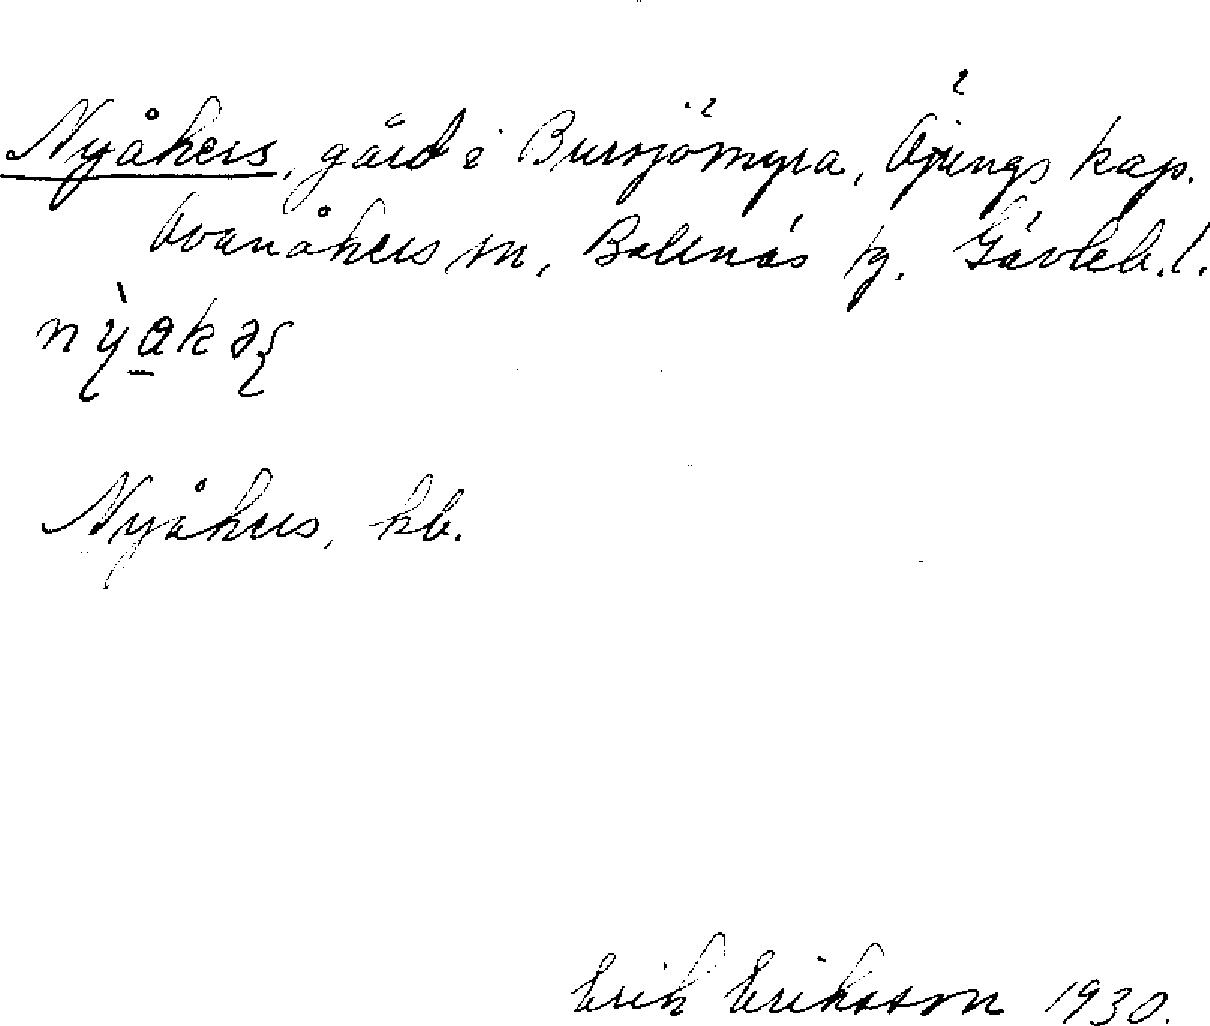 Nyåkers, gård i Bursjömyra, Öjungs kap.
Ovanåkers sn, Bollnäs tg. Gävleb. l.
Nyåkers, kb.
Erik Eriksson 1930.